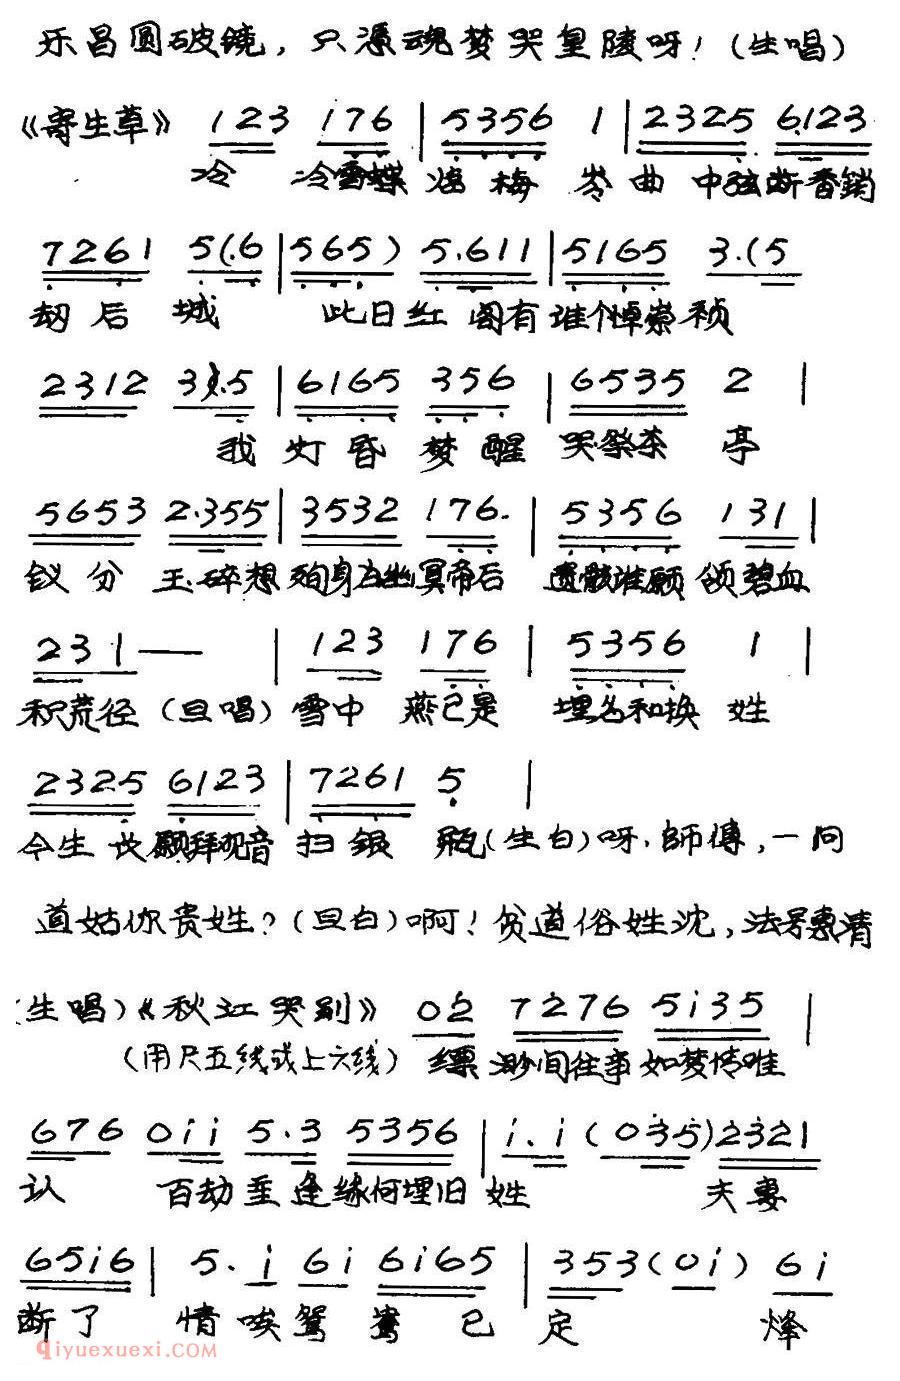 乐昌圆破镜，只凭魂梦哭皇陵呀！（生唱）
《寄生草》 123 176 | 5356 1 | 2325 6123
冷 冷雪蝶 烟梅 岑曲 中弦断香销
7261 5(.6 | 565) 5.611 | 5165 3.(5
劫后 城 此日红 阁有谁个悼崇祯
2312 3).5 | 6165 356 | 6535 2 |
我 灯昏 梦醒 哭祭茶 亭
5653 2.355 | 3532 176. | 5356 131 |
钗分 玉碎想 殉身 幽冥帝后 遗骸谁顾 颂碧血
231— | 123 176 | 5356 1 |
积荒径（旦唱）雪中 燕已是 埋名和换 姓
2325 6123 | 7261 5 |
今生 长愿拜观音 扫银 瓶（生白）呀，師傅，一问
道姑你贵姓？（旦白）啊！贫道俗姓沈，法号惠清
（生唱）《秋江哭别》 02 7276 5i35 |
（用尺五线或上六线） 缥 渺间往事 如梦情唯
676 0ii 5.3 5356 | i.i (035) 2321
认 百劫重 逢缘何埋旧 姓 夫妻
65i6 | 5.i 6i 6i65 | 353 (0i) 6i
断了 情唉鸳 鸯已 定 烽
qiyuexuexi.com